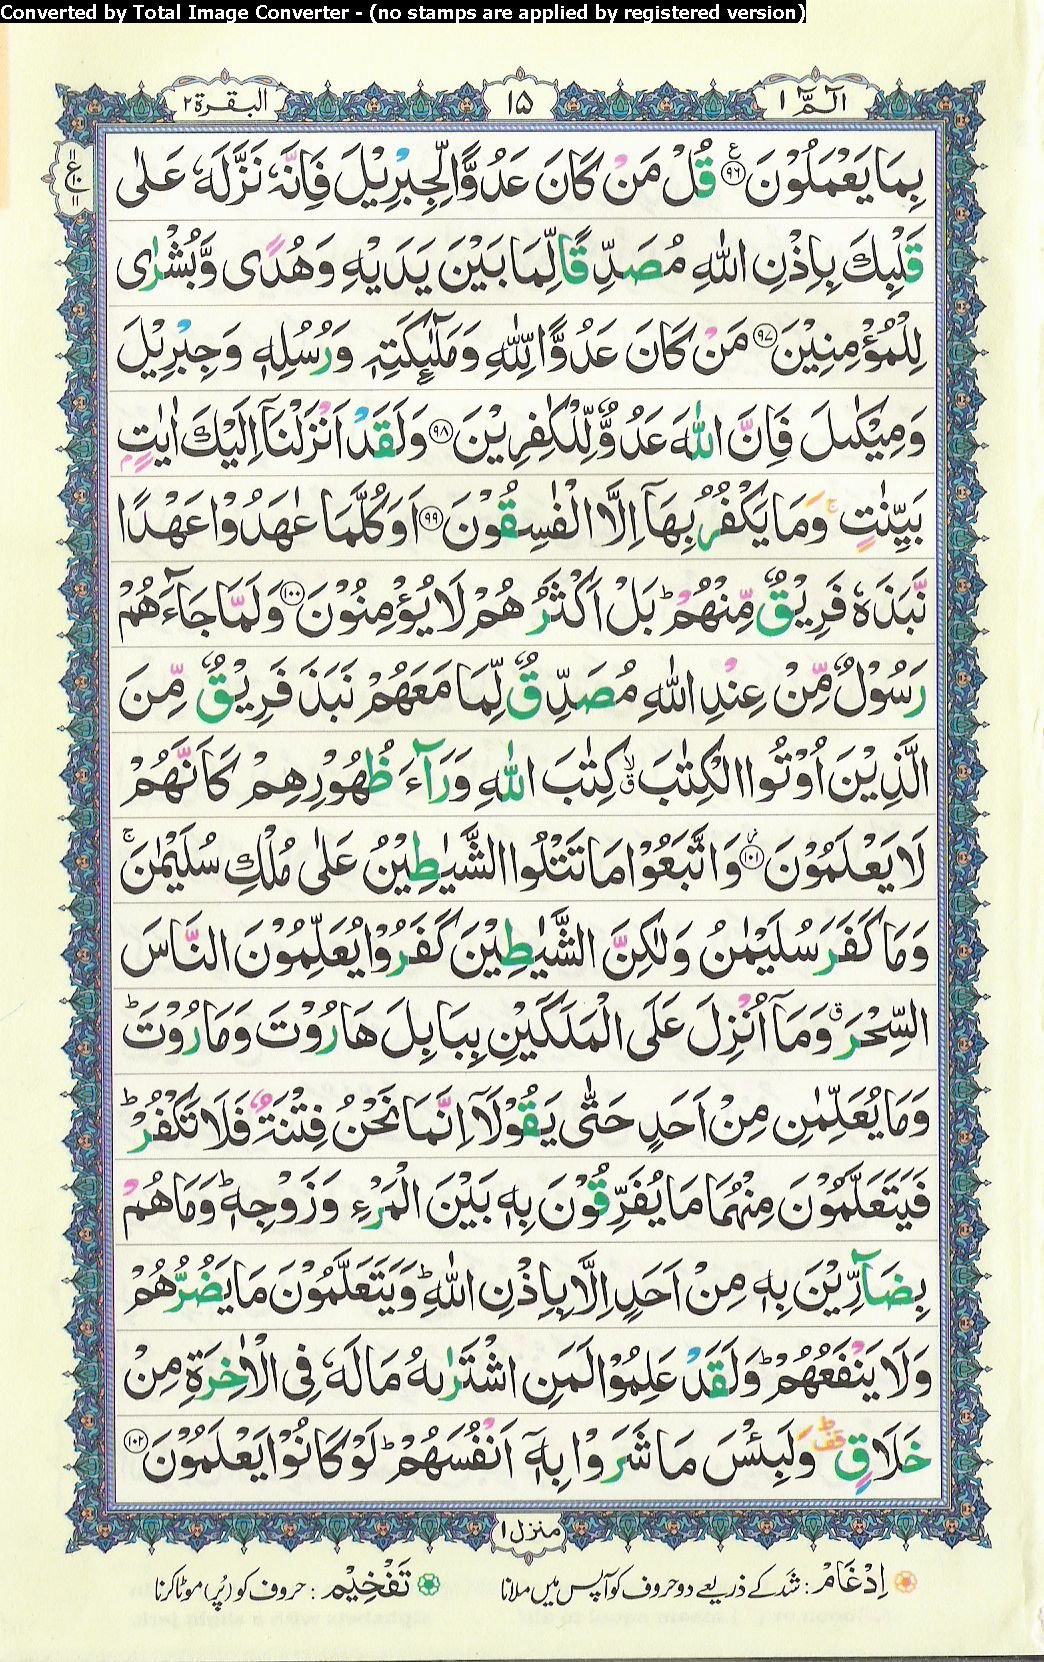 Converted by Total Image Converter - (no stamps are applied by registered version)
الٓمّٓ ١
١٥
البقرة ٢
ع
١١
١٠
١١
بِمَا يَعْمَلُوْنَ ﴿٩٦﴾ قُلْ مَنْ كَانَ عَدُوًّا لِّجِبْرِيْلَ فَاِنَّهٗ نَزَّلَهٗ عَلٰى
قَلْبِكَ بِاِذْنِ اللّٰهِ مُصَدِّقًا لِّمَا بَيْنَ يَدَيْهِ وَهُدًى وَّبُشْرٰى
لِلْمُؤْمِنِيْنَ ﴿٩٧﴾ مَنْ كَانَ عَدُوًّا لِّلّٰهِ وَمَلٰٓئِكَتِهٖ وَرُسُلِهٖ وَجِبْرِيْلَ
وَمِيْكٰىلَ فَاِنَّ اللّٰهَ عَدُوٌّ لِّلْكٰفِرِيْنَ ﴿٩٨﴾ وَلَقَدْ اَنْزَلْنَاۤ اِلَيْكَ اٰيٰتٍۭ
بَيِّنٰتٍ ۚ وَمَا يَكْفُرُ بِهَاۤ اِلَّا الْفٰسِقُوْنَ ﴿٩٩﴾ اَوَكُلَّمَا عٰهَدُوْا عَهْدًا
نَّبَذَهٗ فَرِيْقٌ مِّنْهُمْ ؕ بَلْ اَكْثَرُهُمْ لَا يُؤْمِنُوْنَ ﴿١٠٠﴾ وَلَمَّا جَآءَهُمْ
رَسُوْلٌ مِّنْ عِنْدِ اللّٰهِ مُصَدِّقٌ لِّمَا مَعَهُمْ نَبَذَ فَرِيْقٌ مِّنَ
الَّذِيْنَ اُوْتُوا الْكِتٰبَ ۙۗ كِتٰبَ اللّٰهِ وَرَآءَ ظُهُوْرِهِمْ كَاَنَّهُمْ
لَا يَعْلَمُوْنَ ﴿١٠١﴾ وَاتَّبَعُوْا مَا تَتْلُوا الشَّيٰطِيْنُ عَلٰى مُلْكِ سُلَيْمٰنَ ۚ
وَمَا كَفَرَ سُلَيْمٰنُ وَلٰكِنَّ الشَّيٰطِيْنَ كَفَرُوْا يُعَلِّمُوْنَ النَّاسَ
السِّحْرَ ۗ وَمَاۤ اُنْزِلَ عَلَى الْمَلَكَيْنِ بِبَابِلَ هَارُوْتَ وَمَارُوْتَ ؕ
وَمَا يُعَلِّمٰنِ مِنْ اَحَدٍ حَتّٰى يَقُوْلَاۤ اِنَّمَا نَحْنُ فِتْنَةٌ فَلَا تَكْفُرْ ؕ
فَيَتَعَلَّمُوْنَ مِنْهُمَا مَا يُفَرِّقُوْنَ بِهٖ بَيْنَ الْمَرْءِ وَزَوْجِهٖ ؕ وَمَا هُمْ
بِضَآرِّيْنَ بِهٖ مِنْ اَحَدٍ اِلَّا بِاِذْنِ اللّٰهِ ؕ وَيَتَعَلَّمُوْنَ مَا يَضُرُّهُمْ
وَلَا يَنْفَعُهُمْ ؕ وَلَقَدْ عَلِمُوْا لَمَنِ اشْتَرٰىهُ مَا لَهٗ فِى الْاٰخِرَةِ مِنْ
خَلَاقٍ ؕ قف وَلَبِئْسَ مَا شَرَوْا بِهٖۤ اَنْفُسَهُمْ ؕ لَوْ كَانُوْا يَعْلَمُوْنَ ﴿١٠٢﴾
منزل ١
اِدْغَامْ : شد کے ذریعے دو حروف کو آپس میں ملانا
تَفْخِيْم : حروف کو (پُر) موٹا کرنا